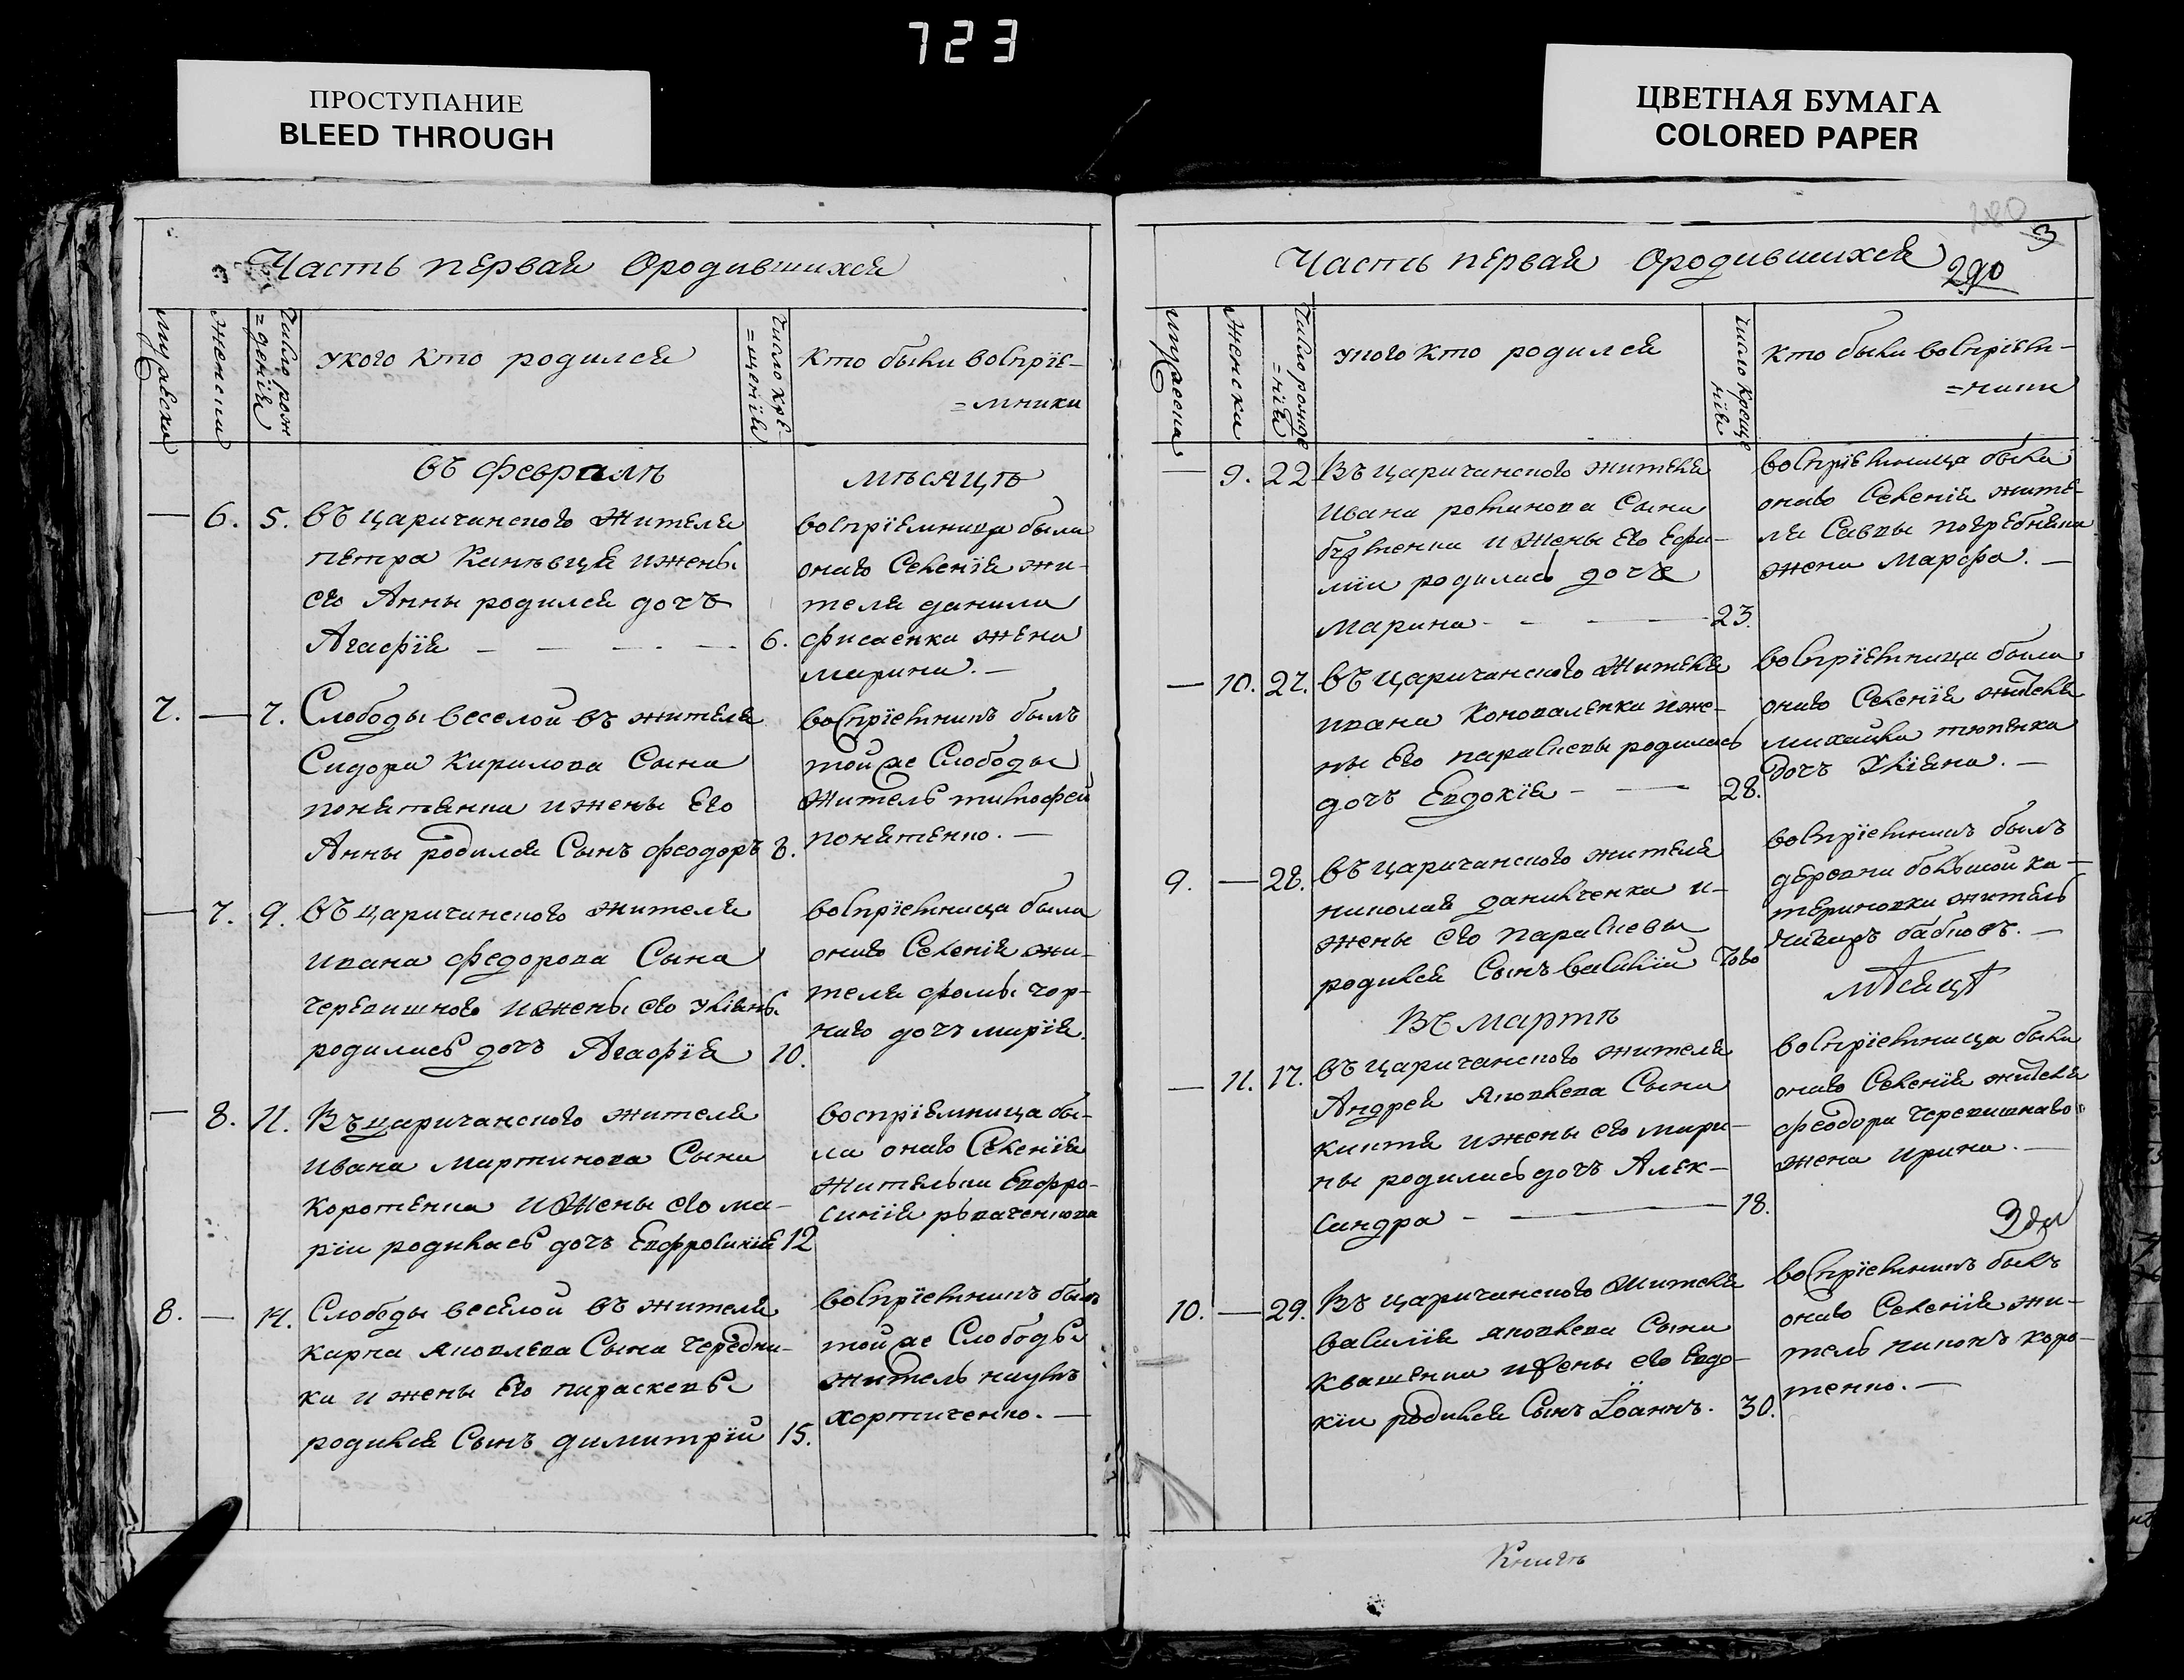 723
ПРОСТУПАНИЕ
BLEED THROUGH
ЦВЕТНАЯ БУМАГА
COLORED PAPER
Часть первая Ородившихся
мужеска
женски
Число рож
=денія
укого кто родился
Число кре-
=щенія
Кто были воспріе-
=мники
въ февралѣ
мѣсяцѣ
— 6. 5. въ царичанского жителя
петра Канѣвця ижены
его Анны родился дочъ
Агафія — — — — 6.
воспріемница была
онаго Селенія жи-
теля данила
фисаенка жена
марина. —
7. — 7. Слободы веселой въ жителя
Сидора Кирилова Сына
понятенка ижены Его
Анны родился Сынъ феодоръ 8.
воспріемникъ былъ
той же Слободы
житель тимофей
понятенко. —
— 7. 9. въ царичанского жителя
ивана федорова Сына
черевишного ижены его уліяны
родилась дочъ Агафія 10.
воспріемница была
онаго Селенія жи-
теля фомы чор-
ного дочъ марія.
— 8. 11. Въ царичанского жителя
ивана мартинова Сына
коротенка ижены его ма-
ріи родилась дочъ Евфросинія 12
воспріемница бы-
ла онаго Селенія
жителька Евфро-
синія
8. — 14. Слободы веселой въ жителя
карпа яковлева Сына Чередни-
ка и жены Его параскевы
родился Сынъ димитрій 15.
воспріемникъ былъ
той же Слободы
житель наумъ
хортиченко. —
280
3
290
Часть первая Ородившихся
мужеска
Женски
Число рожде
=нія
укого кто родился
число Креще
нія
кто были воспріем-
=ники
— 9. 22 Въ царичанского жителя
ивана Сына
ижены Его Ефи-
міи родилась дочъ
марина — — — 23.
воспріемница была
онаго Селенія жите-
ля Савы погребняка
жена Марфа. —
— 10. 27. въ царичанского жителя
ивана Коноваленка иже-
ны Его параскевы родилась
дочъ Евдокія — — 28.
воспріемница была
онаго Селенія жителя
михайла тютенка
дочъ Уліяна. —
9. — 28. въ царичанского жителя
николая данилченка и-
жены его параскевы
родился Сынъ василій
воспріемникъ былъ
деревни большой ка-
териновки житель
бабковъ. —
Въ мартѣ
мѣсяцѣ
— 11. 17. въ царичанского жителя
Андрея яковлева Сына
ижены его мари-
ны родилась дочъ Алек-
сандра — — 18.
воспріемница была
онаго Селенія жителя
феодора Черевишнаго
жена ирина. —
10. — 29. Въ царичанского жителя
василія яковлева Сына
квашенка ижены его Евдо-
кіи родился Сынъ Іоаннъ. 30.
воспріемникъ былъ
онаго Селенія жи-
тель никонъ коро-
тенко. —
Книгъ